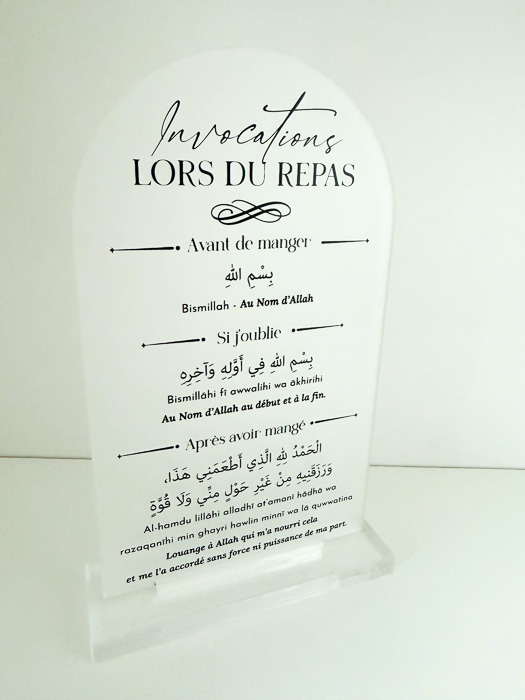 Invocations
LORS DU REPAS
Avant de manger
بِسْمِ اللهِ
Bismillah - Au Nom d'Allah
Si j'oublie
بِسْمِ اللهِ فِي أَوَّلِهِ وَآخِرِهِ
Bismillâhi fî awwalihi wa âkhirihi
Au Nom d'Allah au début et à la fin.
Après avoir mangé
الْحَمْدُ لِلهِ الَّذِي أَطْعَمَنِي هَذَا،
وَرَزَقَنِيهِ مِنْ غَيْرِ حَوْلٍ مِنِّي وَلَا قُوَّةٍ
Al-hamdu lillâhi alladhî at'amanî hâdhâ wa
razaqanîhi min ghayri hawlin minnî wa lâ quwwatina
Louange à Allah qui m'a nourri cela
et me l'a accordé sans force ni puissance de ma part.